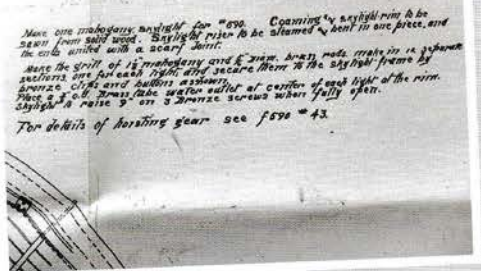 Make one mahogany skylight for #690. Coaming & skylight rim to be
sawn from solid wood. Skylight riser to be steamed & bent in one piece, and
the ends united with a scarf joint.
Make the grill of 1½ mahogany and ½ diam. brass rods, make in 12 separate
sections, one for each light, and secure them to the skylight frame by
bronze clips and buttons as shown.
Place a o.d. brass tube water outlet at center of each light at the rim.
Skylight to raise 9" on 3 bronze screws when fully open.
For details of hoisting gear see f690 # 43.